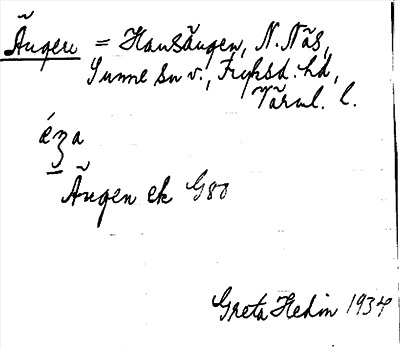 Ängen = Hansängen, N. Näs,
Sunne sn v., Fryksd. hd,
Värml. l.
Ängen ek G80
Greta Hedin 1934